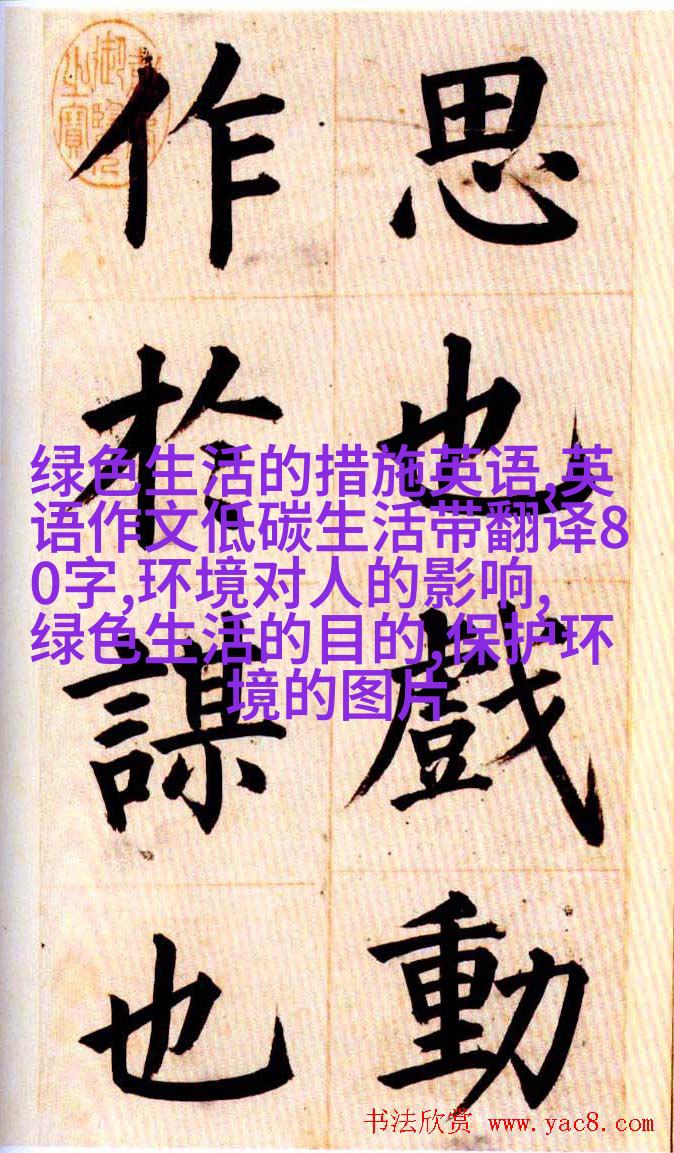 思也戲動
作於謀也
绿色生活的措施英语,英
语作文低碳生活带翻译8
0字,环境对人的影响,
绿色生活的目的,保护环
境的图片
书法欣赏 www.yac8.com